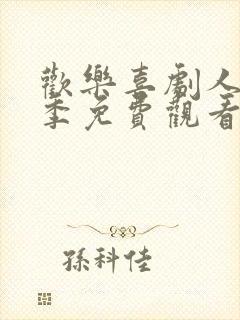 歡樂喜劇人
季免費觀看
孫科佳